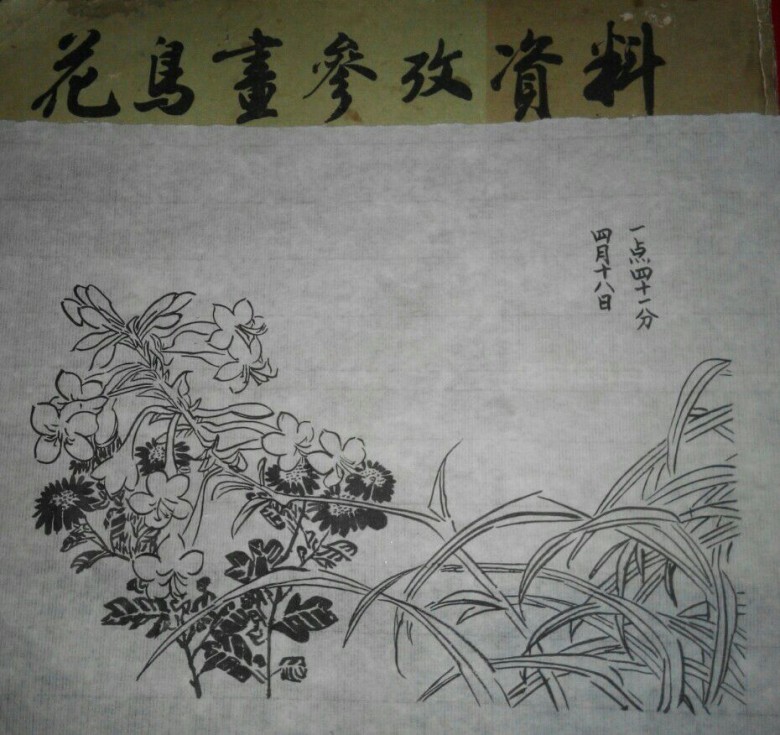 花鳥畫參攷資料
一点四十一分
四月十八日